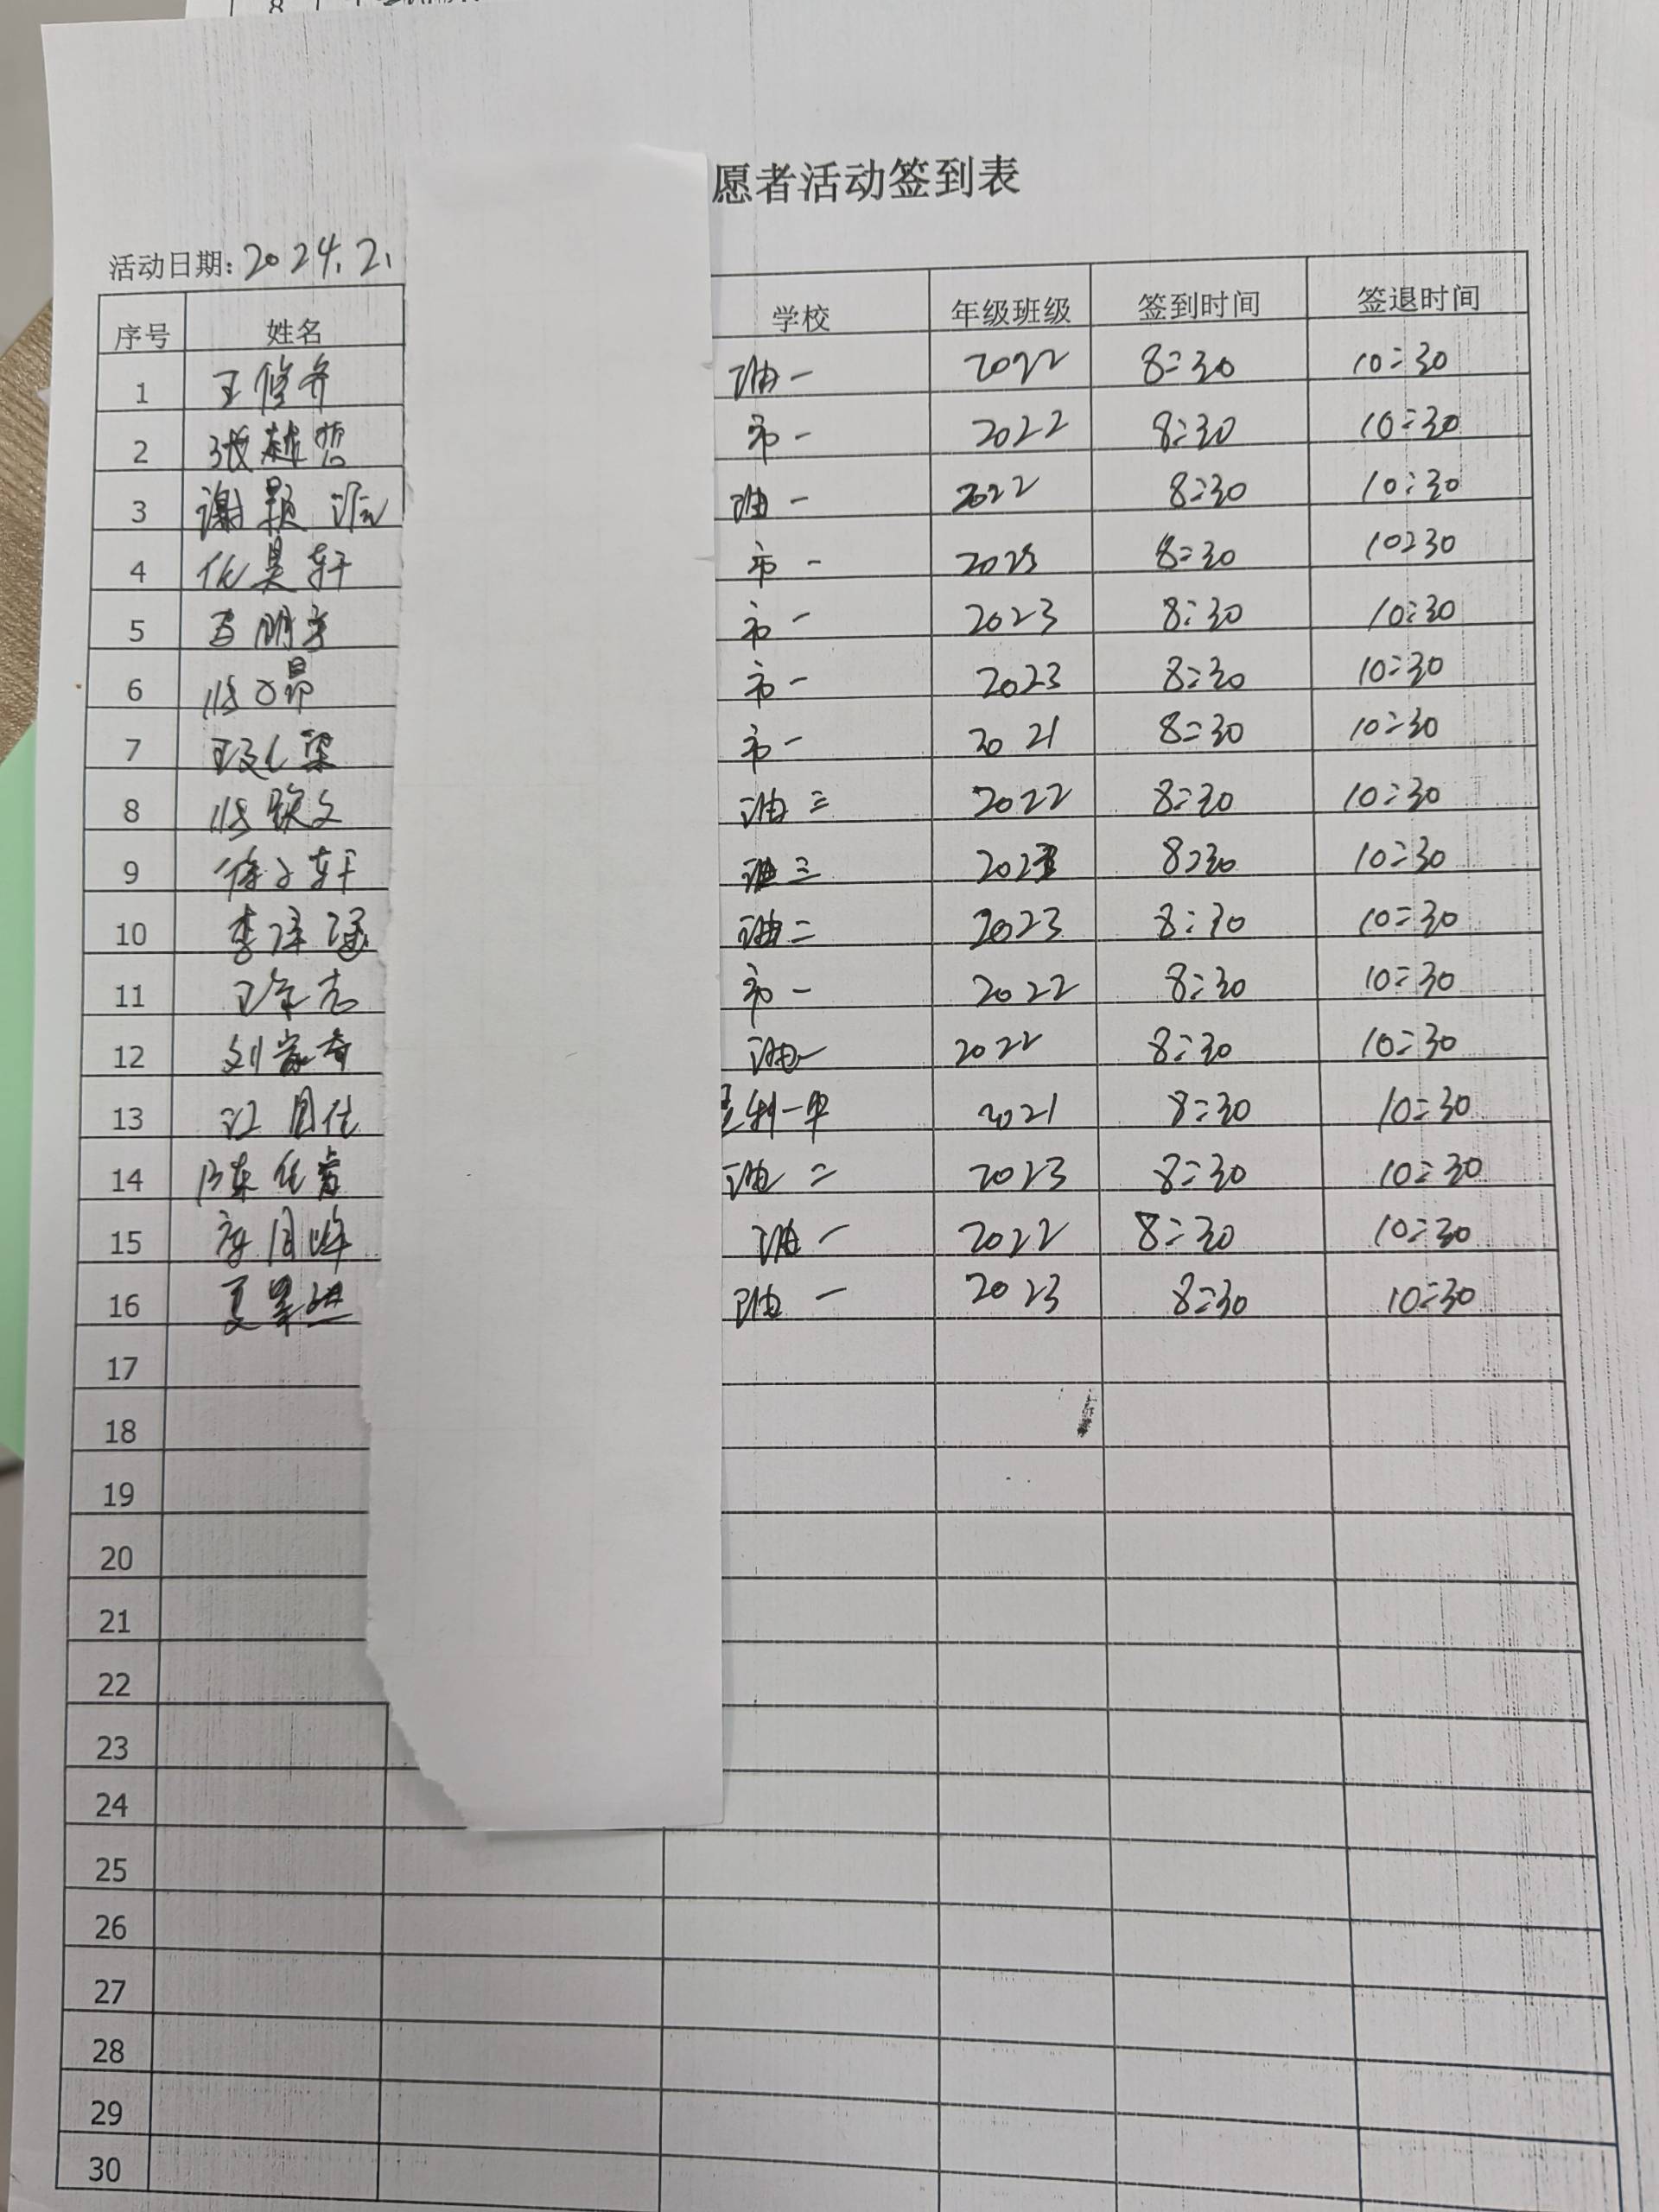 愿者活动签到表
活动日期: 2024.2.
序号 姓名 学校 年级班级 签到时间 签退时间
1 王修齐 油一 2022 8:30 10:30
2 张越哲 市一 2022 8:30 10:30
3 谢颖 油一 2022 8:30 10:30
4 任昊轩 市一 2023 8:30 10:30
5 市一 2023 8:30 10:30
6 市一 2023 8:30 10:30
7 市一 2021 8:30 10:30
8 油三 2022 8:30 10:30
9 徐子轩 油三 2023 8:30 10:30
10 李泽涵 油二 2023 8:30 10:30
11 市一 2022 8:30 10:30
12 刘家奇 油一 2022 8:30 10:30
13 江月佳 一中 2021 8:30 10:30
14 陈 油二 2023 8:30 10:30
15 油一 2022 8:30 10:30
16 夏 油一 2023 8:30 10:30
17
18
19
20
21
22
23
24
25
26
27
28
29
30